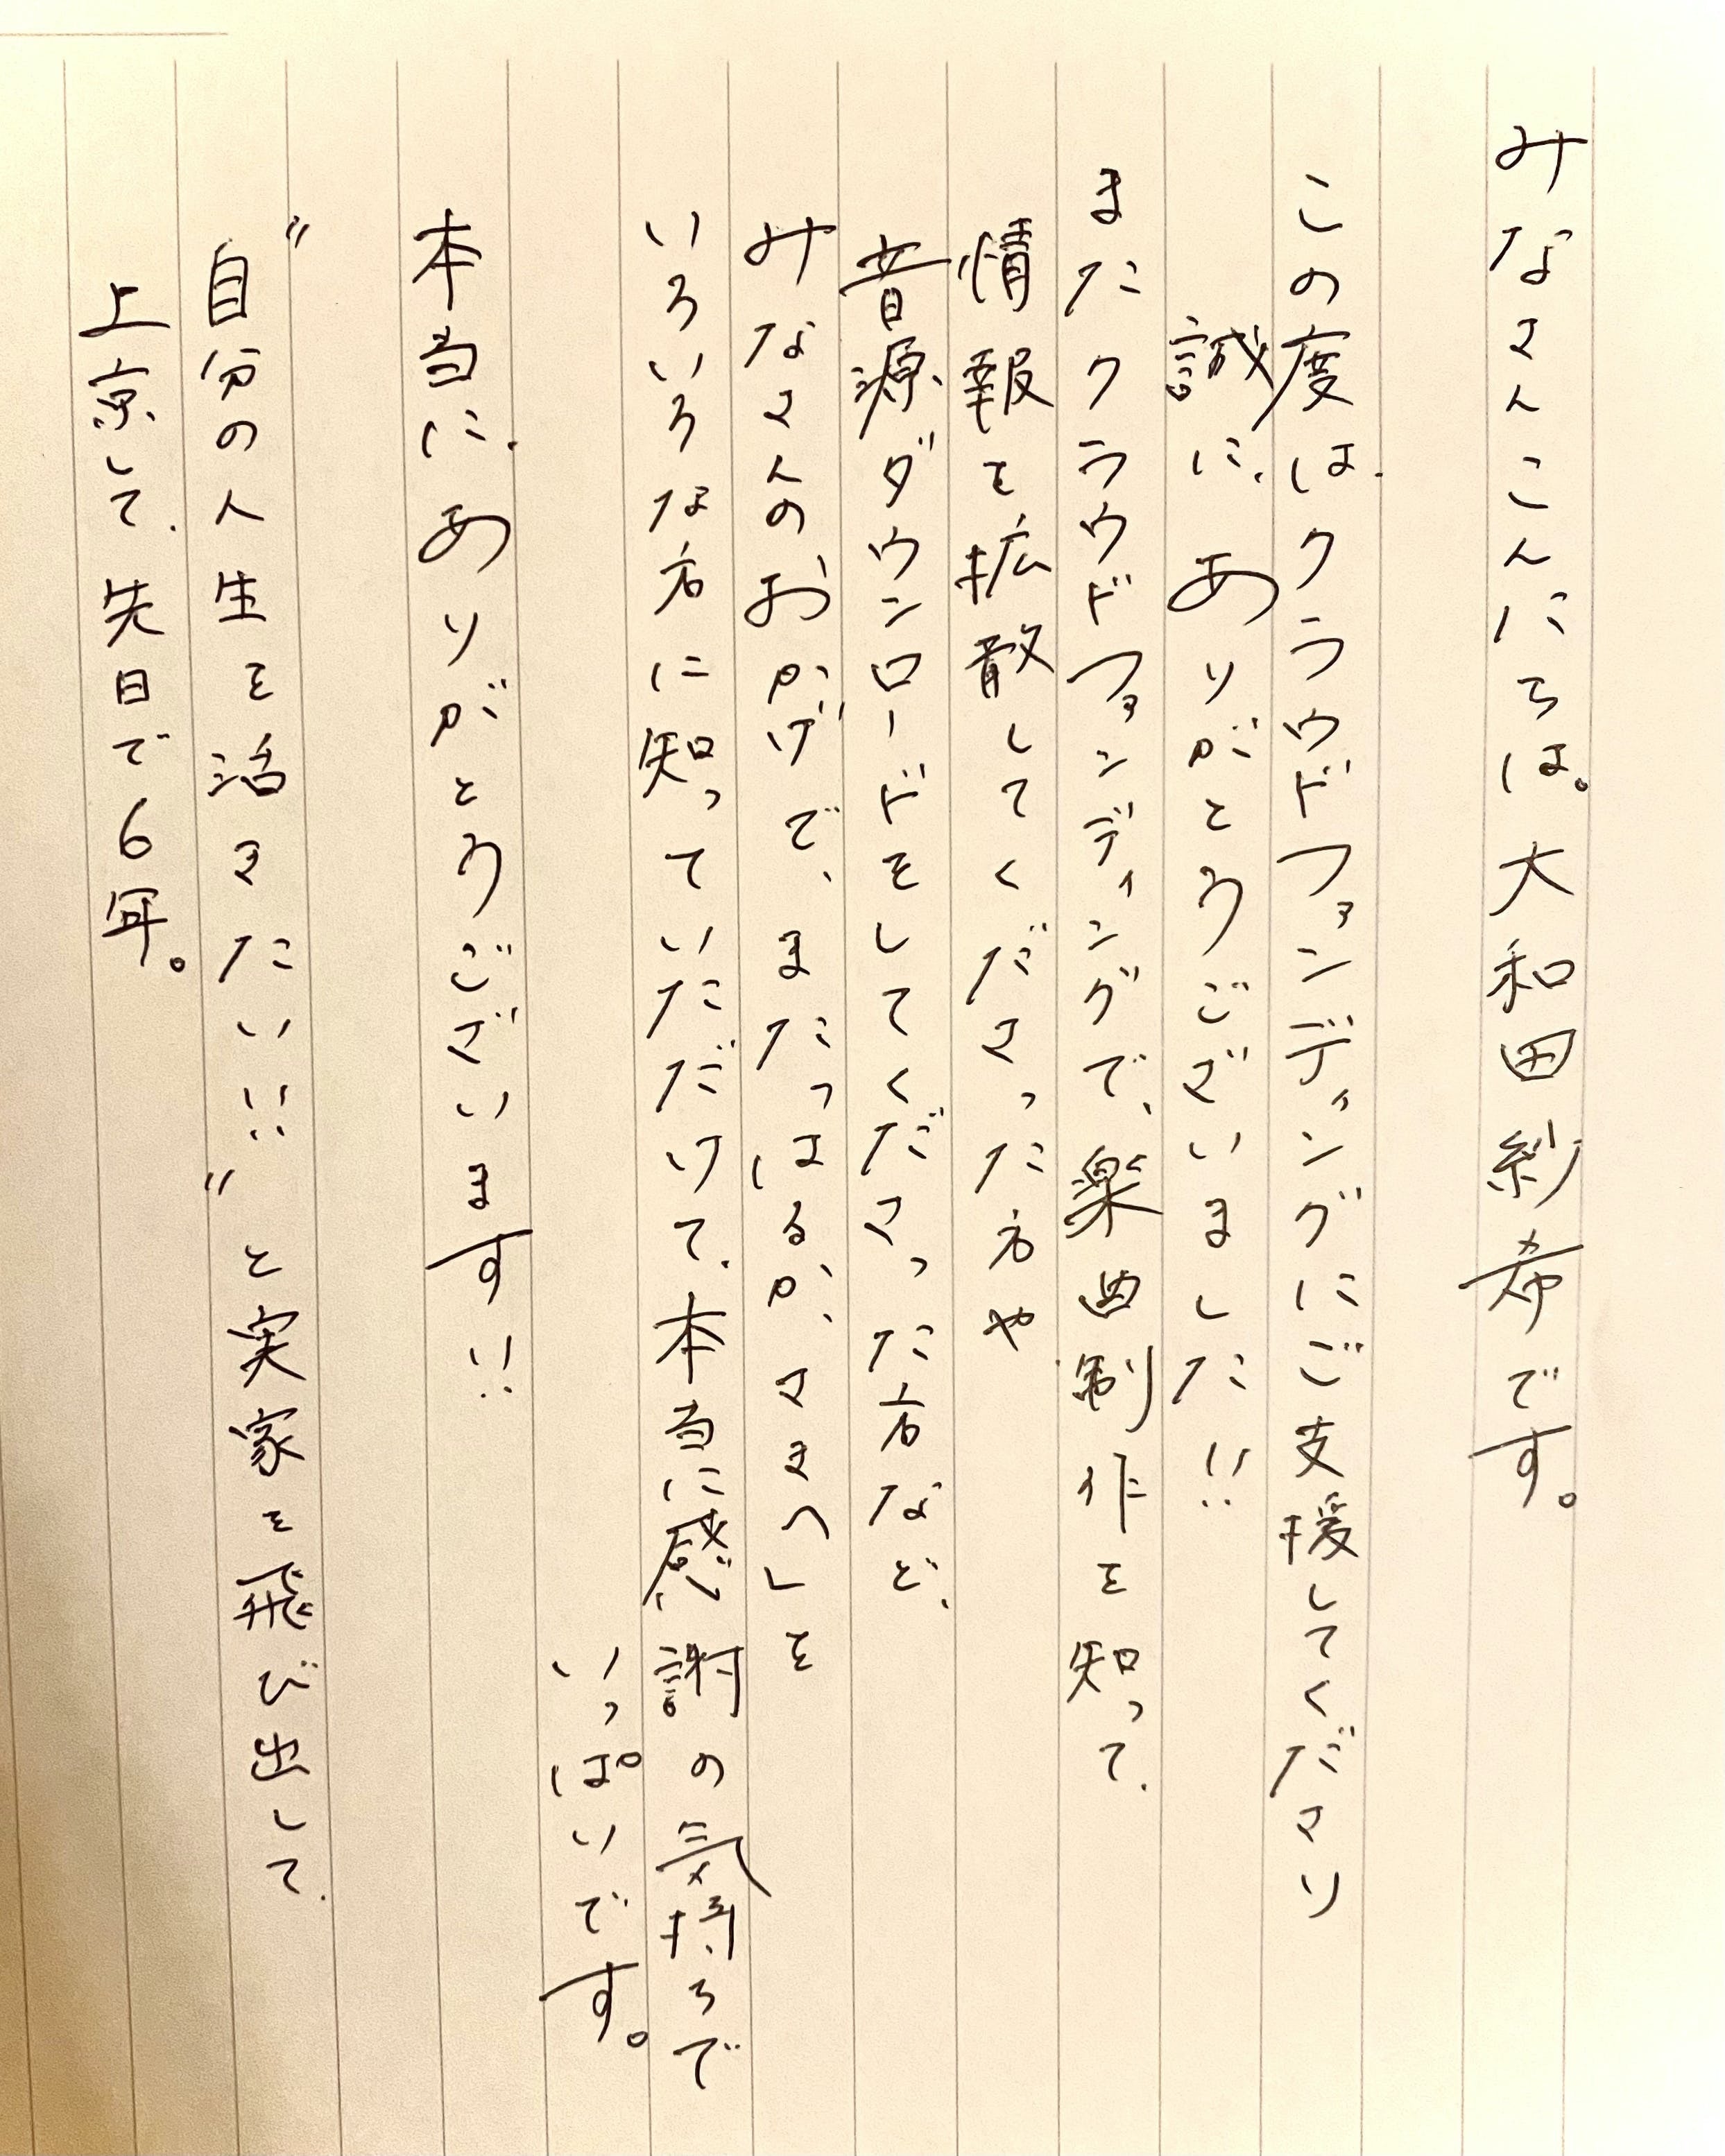 みなさんこんにちは。大和田紗希です。
この度は、クラウドファンディングにご支援してくださり
誠に、ありがとうございました!!
またクラウドファンディングで、楽曲制作を知って、
情報を拡散してくださった方や
音源ダウンロードをしてくださった方など、
みなさんのおかげで、まだっはるか、さきへ」を
いろいろな方に知っていただだけて、本当に感謝の気持ちで
いっぱいです。
本当に、ありがとうございます!!
"自分の人生を活きたい!!"と実家を飛び出して、
上京して、先日で6年。